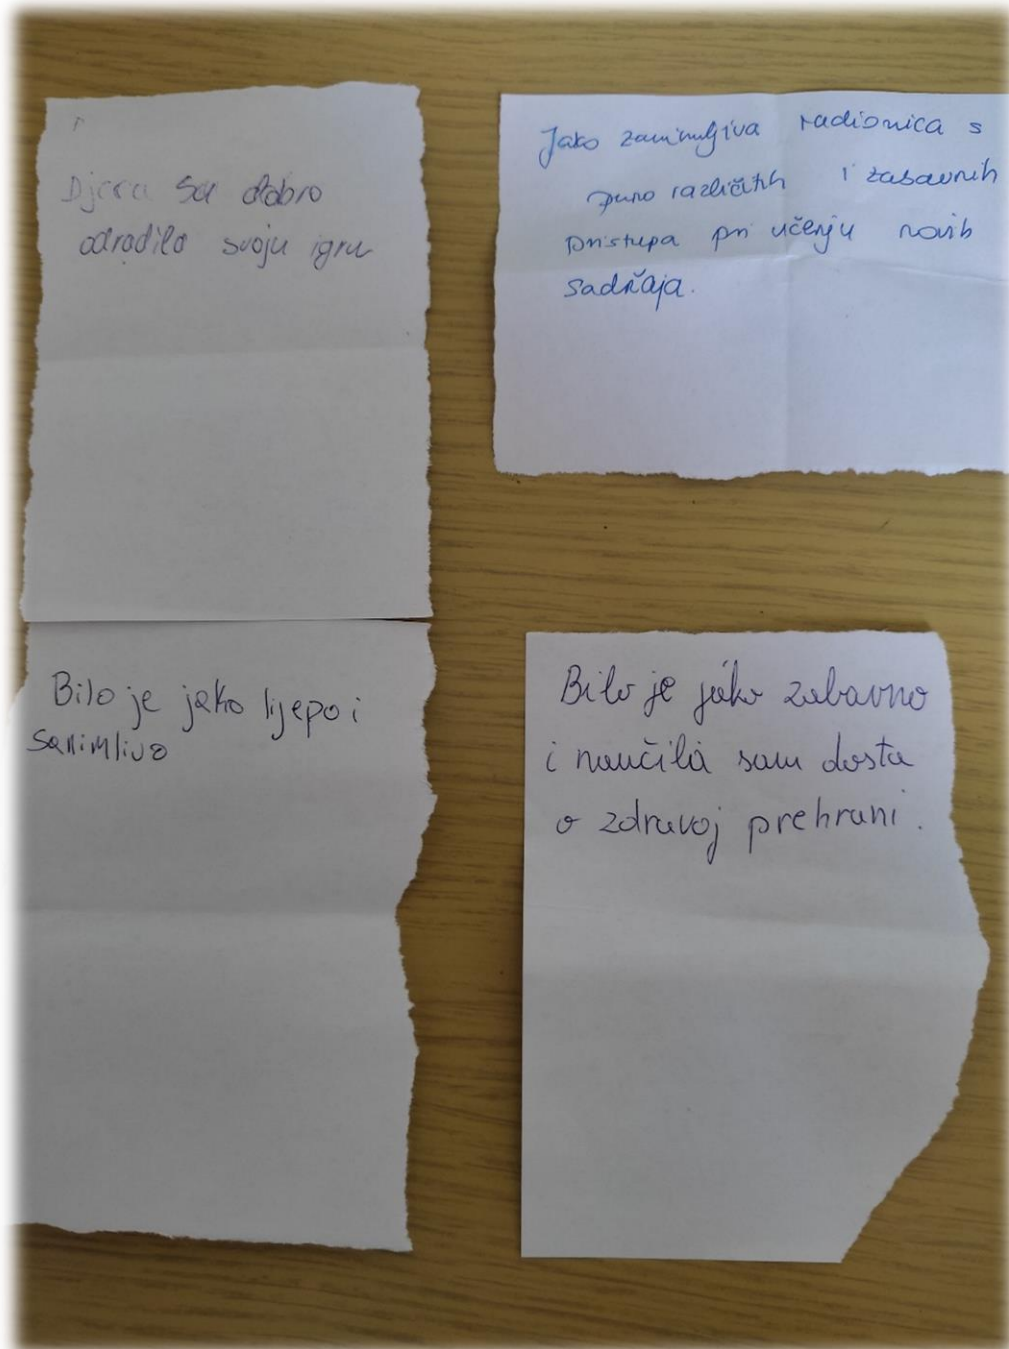 Djeca su dobro
odradila svoju igru
Jako zanimljiva radionica s
puno različitih i zabavnih
pristupa pri učenju novih
sadržaja.
Bilo je jako lijepo i
sanimlivo
Bilo je jako zabavno
i naučila sam dosta
o zdravoj prehrani.